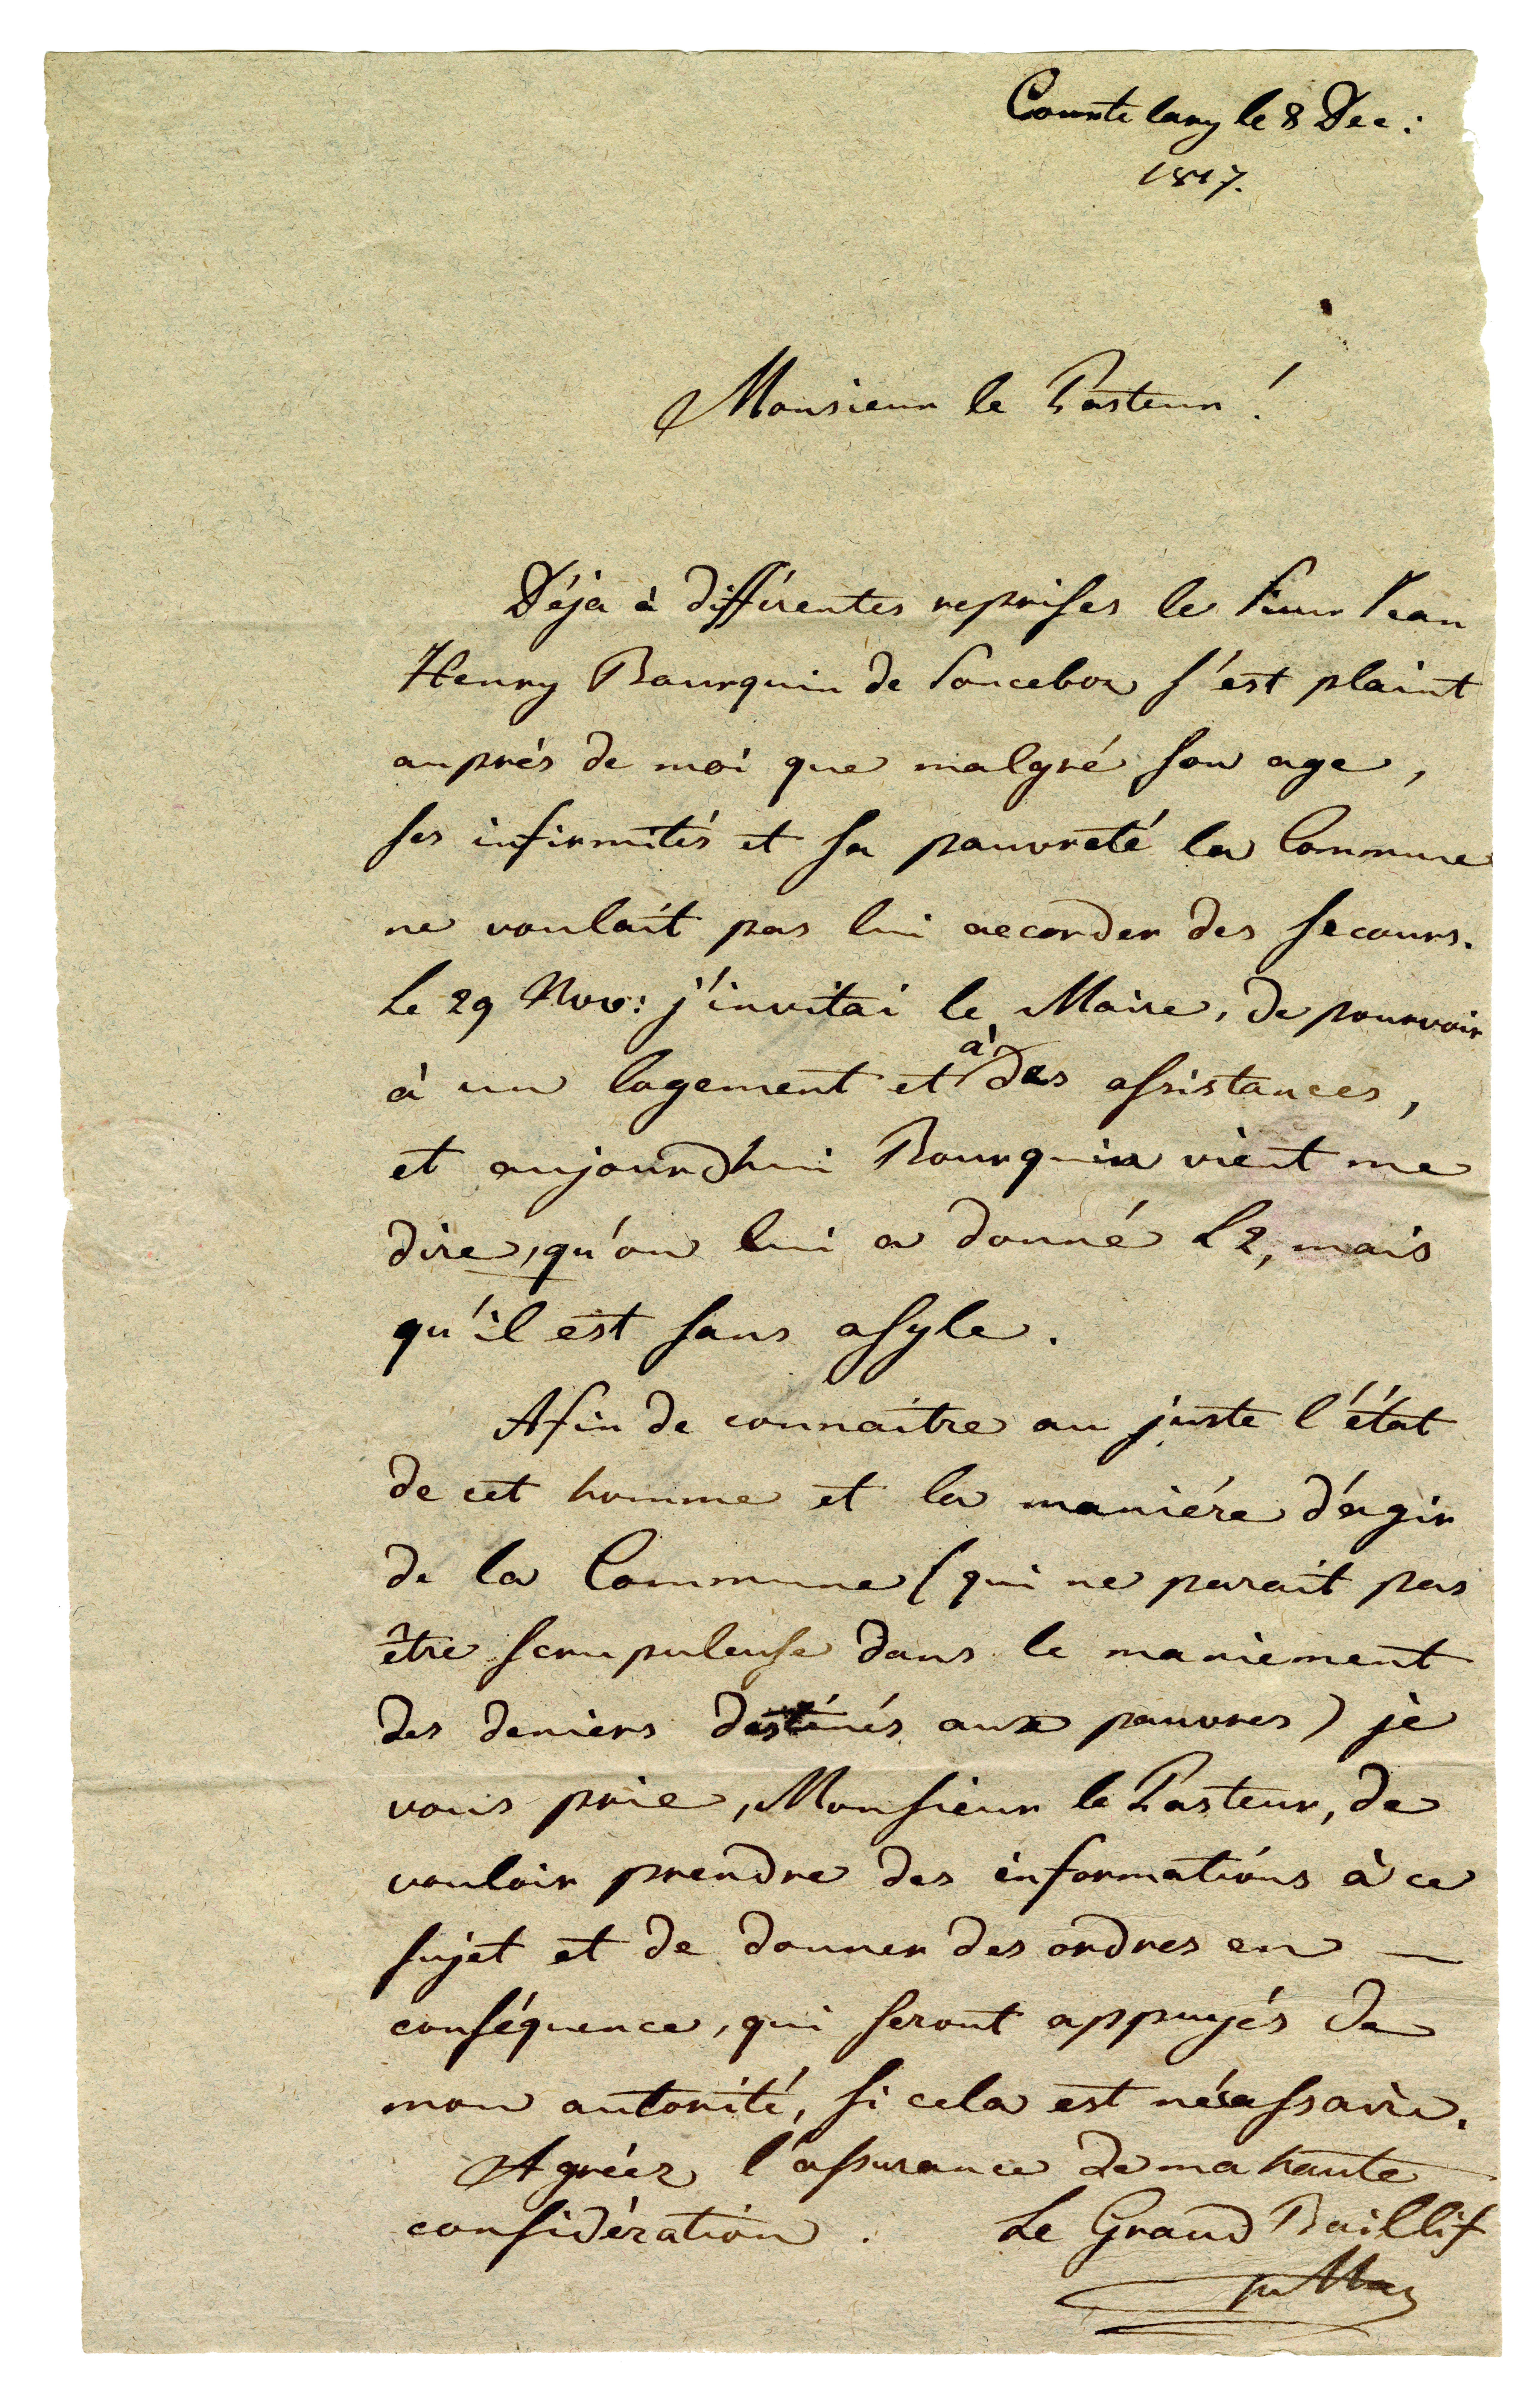 Courtelary le 8 Dec:
1817.
Monsieur le Pasteur!
Déja à différentes reprises le Sieur Jean
Henry Bourquin de Sonceboz s'est plaint
auprès de moi que malgré son age,
ses infirmités et sa pauvreté la Commune
ne voulait pas lui accorder des secours.
Le 29 Nov: j'invitai le Maire, de pourvoir
à un logement et à des assistances,
et aujourdhui Bourquin vient me
dire, qu'on lui a donné L2, mais
qu'il est sans asyle.
Afin de connaitre au juste l'état
de cet homme et la maniére d'agir
de la Commune (qui ne parait pas
être scrupuleuse dans le maniement
des deniers destinés aux pauvres) je
vous prie, Monsieur le Pasteur, de
vouloir prendre des informations à ce
sujet et de donner des ordres en —
conséquence, qui seront appuyés de
mon autorité, si cela est nécessaire.
Agréez l'assurance de ma haute
considération. Le Grand Baillif